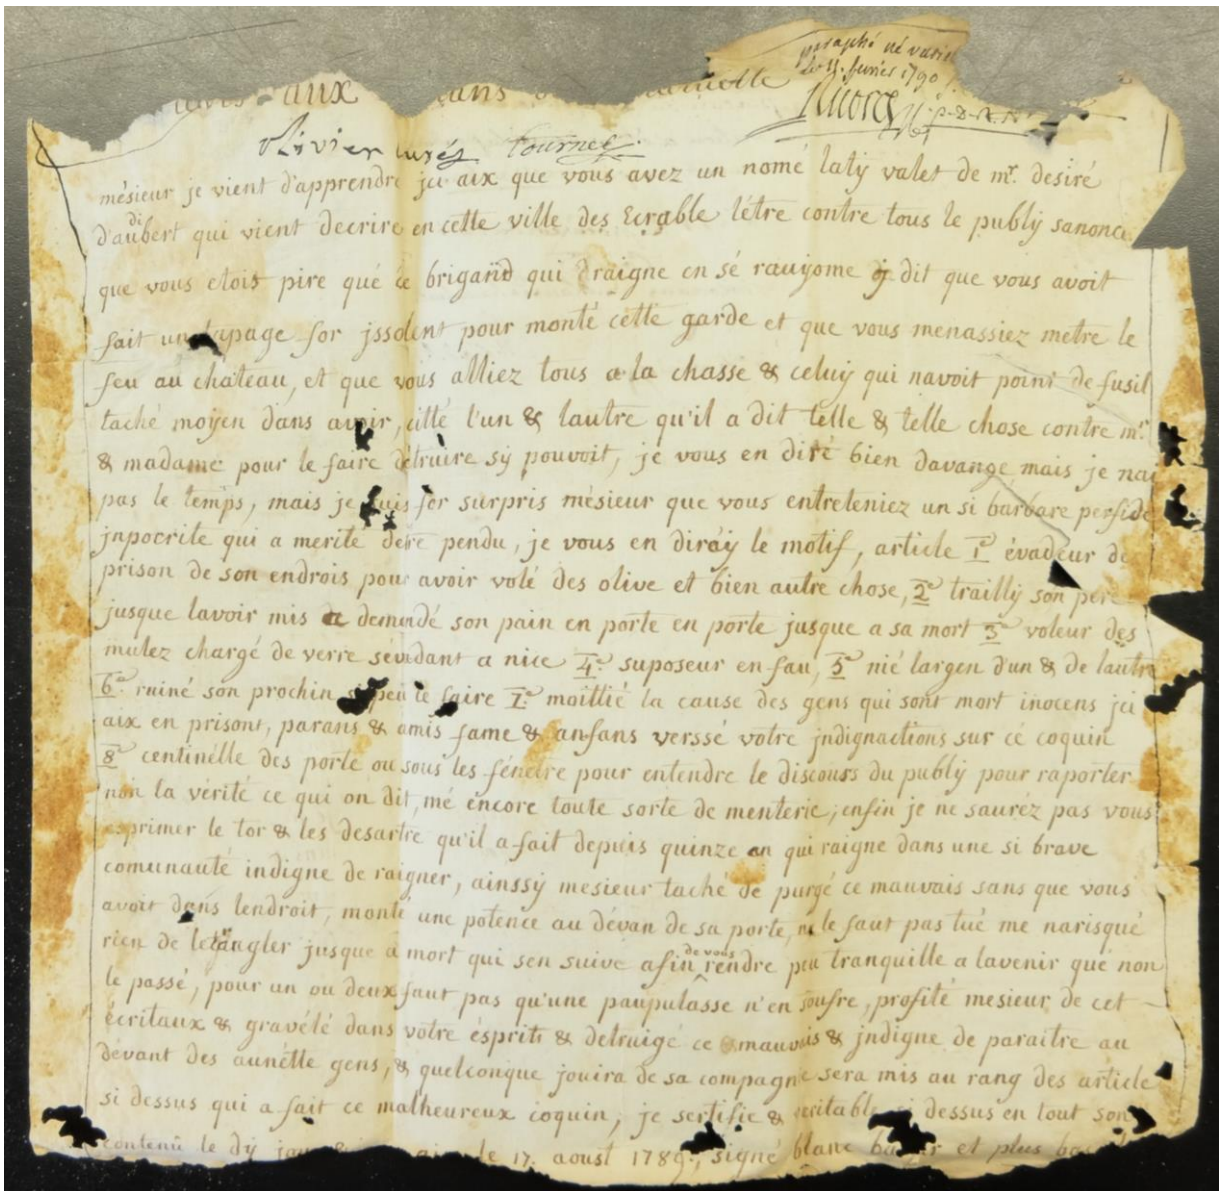 paraphé ne varie
le 4. fevrier 1790
aux
olivier curés tournef.
mésieur je vient d'apprendre jci aix que vous avez un nomé laty valet de mr. desiré
d'audibert qui vient decrire en cette ville des Ecrable létre contre tous le publÿ sanonce
que vous etois pire qué ce brigand qui draigne en sé rauÿome & dit que vous avoit
fait un tapage for jssolent pour monté cette garde et que vous menassiez metre le
feu au chateau, et que vous alliez tous a la chasse & celuÿ qui navoit point de fusil
taché moÿen dans avoir, citté l'un & lautre qu'il a dit telle & telle chose contre mr.
& madame pour le faire détruire sÿ pouvoit, je vous en diré bien davange mais je nai
pas le temps, mais je suis for surpris mésieur que vous entreteniez un si barbare perfide
jnpocrite qui a merité detre pendu, je vous en diraÿ le motif, article 1e évadeur de
prison de son endrois pour avoir volé des olive et bien autre chose, 2e traillÿ son pere
jusque lavoir mis a demandé son pain en porte en porte jusque a sa mort 3e voleur des
mulez chargé de verre sévadant a nice 4e suposeur en fau, 5e nié largen d'un & de lautre
6e ruiné son prochin si peu le faire 7e moittié la cause des gens qui sont mort inocens jci
aix en prisont, parans & amis fame & anfans verssé votre jndignactions sur cé coquin
8e centinélle des porte ou sous les fénetre pour entendre le discouss du publÿ pour raporter
non la vérité ce qui on dit, mé encore toute sorte de menterie, enfin je ne sauréz pas vous
esprimer le tor & les desartre qu'il a fait depuis quinze an qui raigne dans une si brave
comunauté indigne de raigner, ainssÿ mesieur taché de purgé ce mauvais sans que vous
avoit dans lendroit, monté une potence au dévan de sa porte, ne le faut pas tué me narisqué
rien de letrangler jusque a mort qui sen suive afin de vous rendre peu tranquille a lavenir qué non
le passé, pour un ou deux faut pas qu'une paupulasse n'en soufre, profité mesieur de cet
écritaux & gravélé dans votre ésprits & detruigé ce mauvais & jndigne de paraitre au
dévant des aunétte gens, & quelconque jouira de sa compagne sera mis au rang des article
si dessus qui a fait ce malheureux coquin, je sertifie & veritable si dessus en tout son
contenû le dÿ le 17. aoust 1789., signé blanc et plus bas